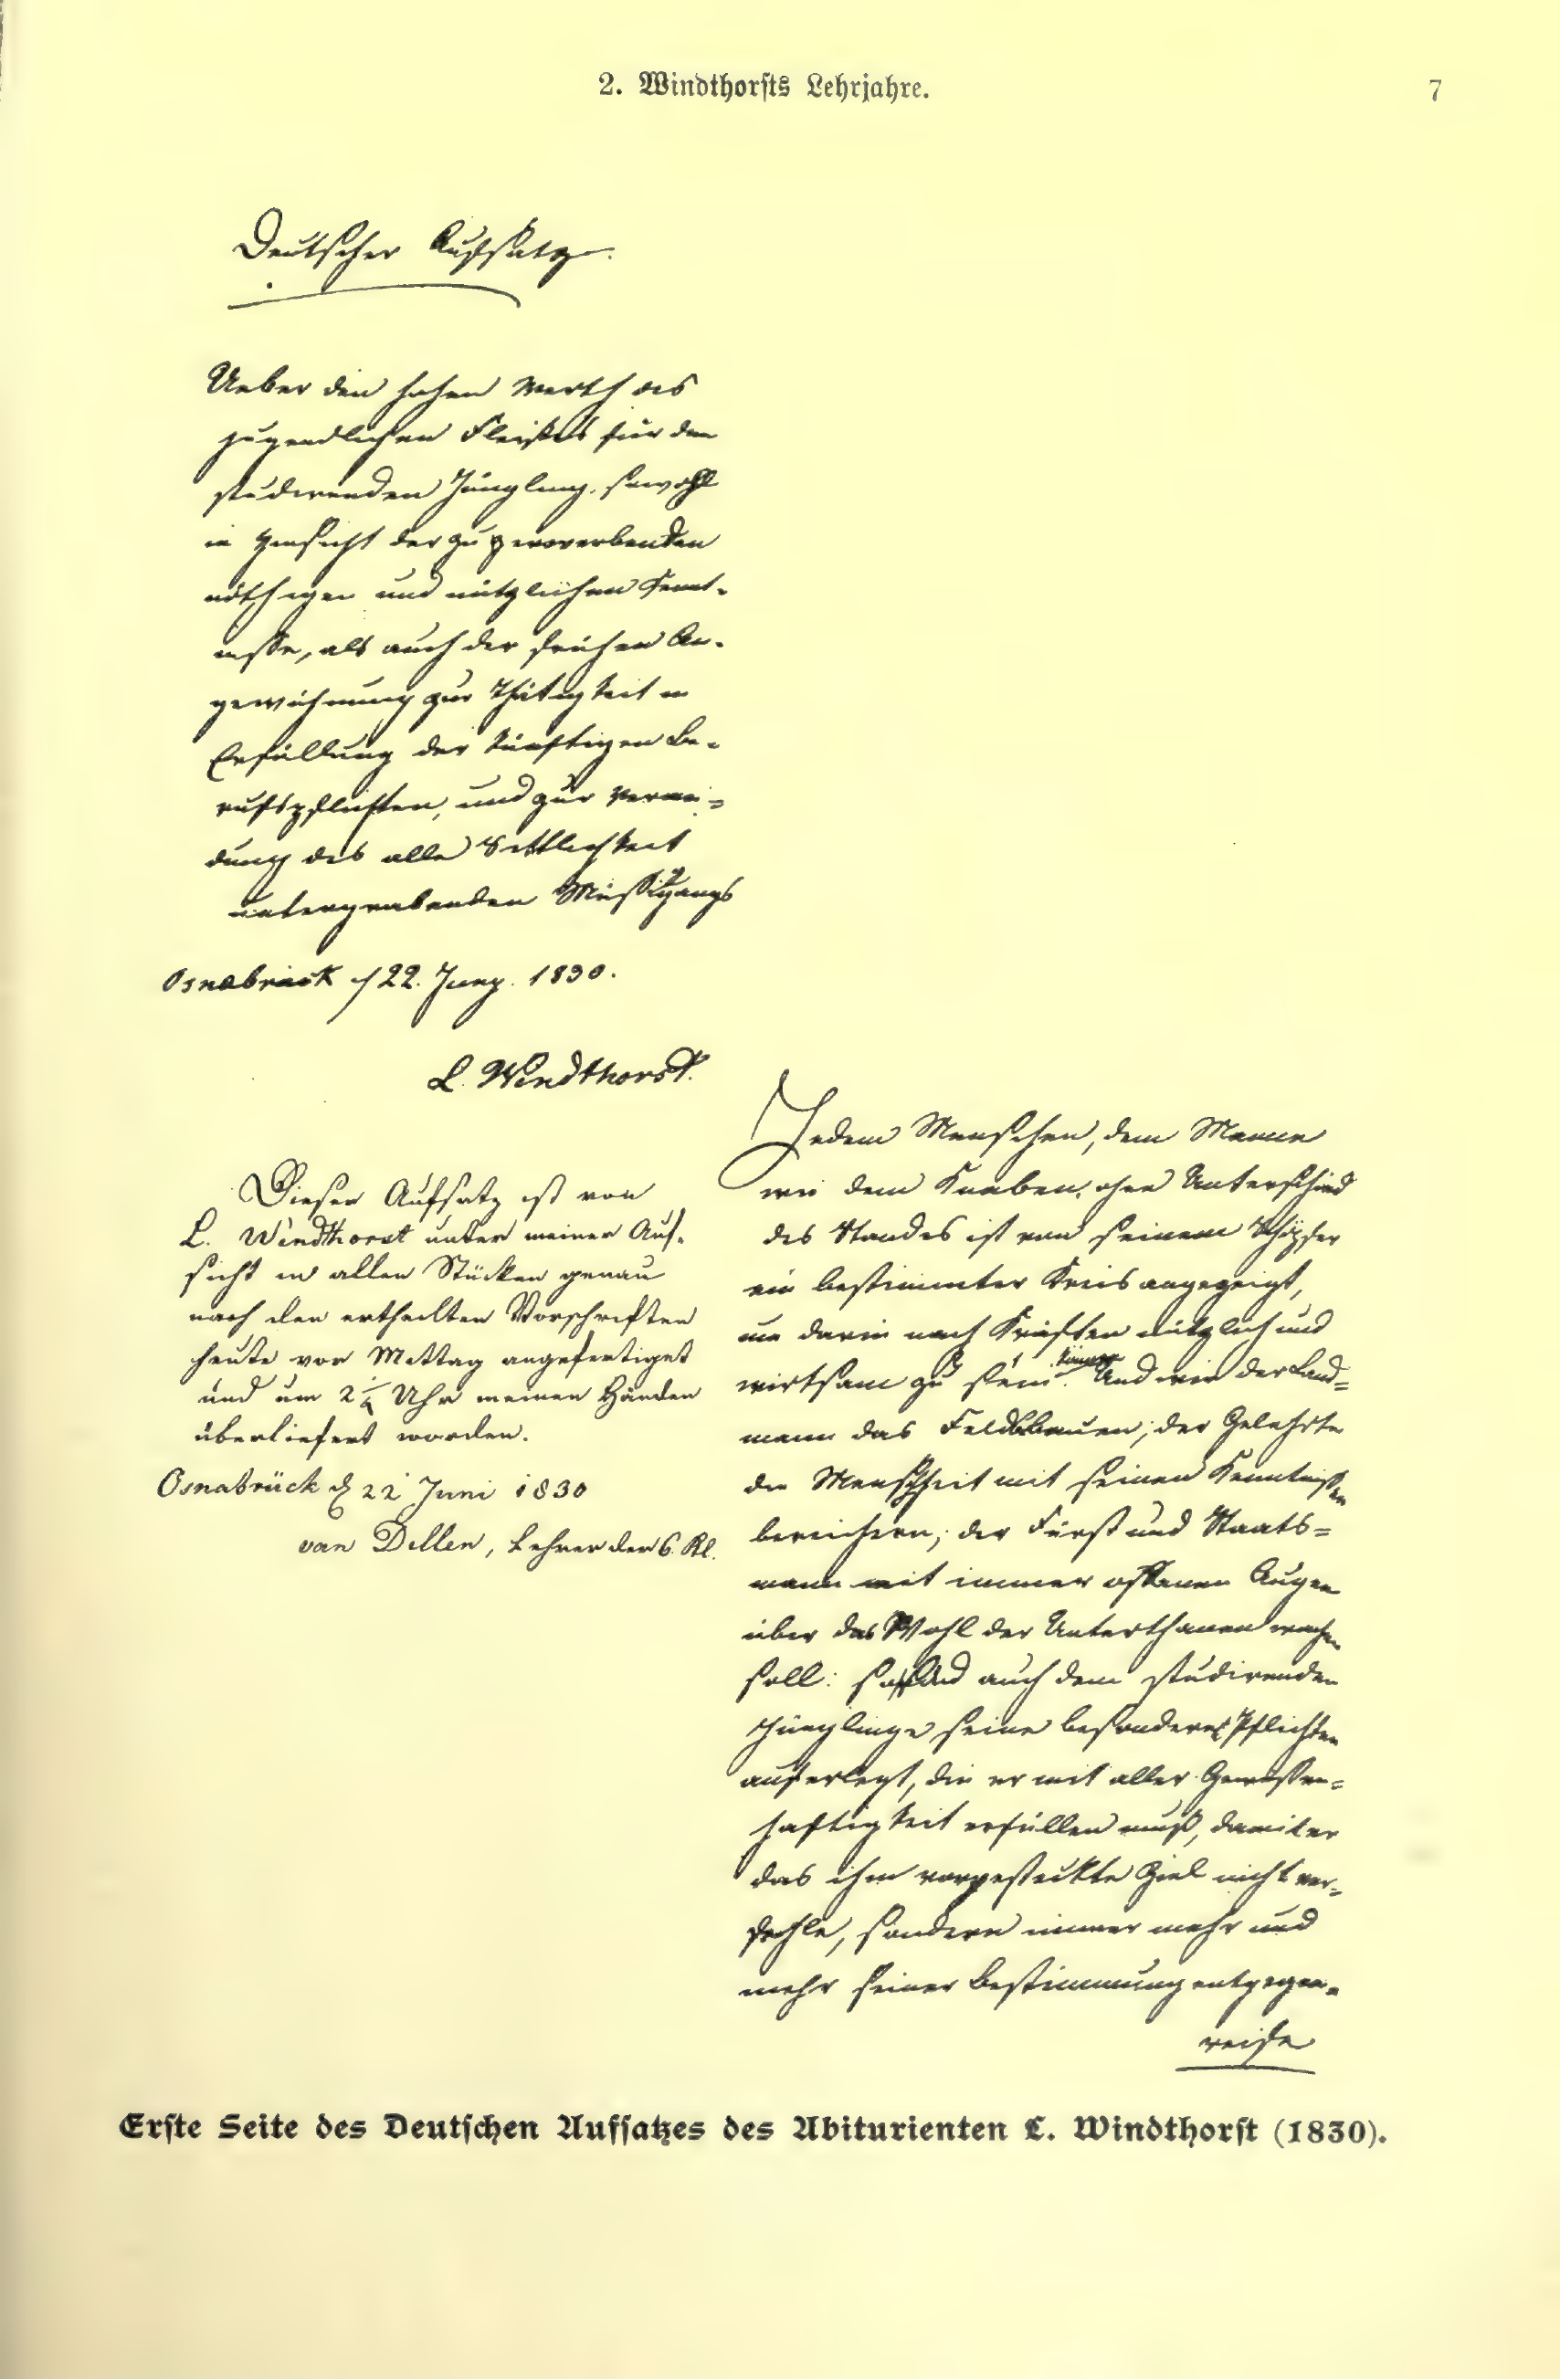 2. Windthorsts Lehrjahre.
7
Deutscher Aufsatz.
Ueber den hohen Werth des
jugendlichen Fleißes für den
studirenden Jüngling, sowohl
in Hinsicht der zu erwerbenden
nöthigen und nützlichen Kennt-
nisse, als auch der frühen An-
gewöhnung zur Thätigkeit in
Erfüllung der künftigen Be-
rufspflichten, und zur Vermei=
dung des alle Sittlichkeit
untergrabenden Müssiggangs
Osnabrück d 22. Juny. 1830.
L. Windthorst.
Dieser Aufsatz ist von
L. Windthorst unter meiner Auf-
sicht in allen Stücken genau
nach den ertheilten Vorschriften
heute vor Mittag angefertiget
und um 2 Uhr meinen Händen
überliefert worden.
Osnabrück d 22 Juni 1830
van Dellen, Lehrer der 6. Kl.
Jedem Menschen, dem Manne
wie dem Knaben, ohne Unterschied
des Standes ist von seinem Schöpfer
ein bestimmter Kreis angezeigt,
um darin nach Kräften nützlich und
wirksam zu sein. Und wie der Land=
mann das Feld bauen, der Gelehrte
die Menschheit mit seinen Kenntnissen
bereichern, der Fürst und Staats=
mann mit immer offenen Augen
über das Wohl der Unterthanen wachen
soll: so sind auch dem studirenden
Jünglinge seine besondere Pflichten
auferlegt, die er mit aller Gewissen=
haftigkeit erfüllen muß, damit er
das ihm vorgesteckte Ziel nicht ver=
fehle, sondern immer mehr und
mehr seiner Bestimmung entgegen-
reife
Erste Seite des Deutschen Aufsatzes des Abiturienten L. Windthorst (1830).